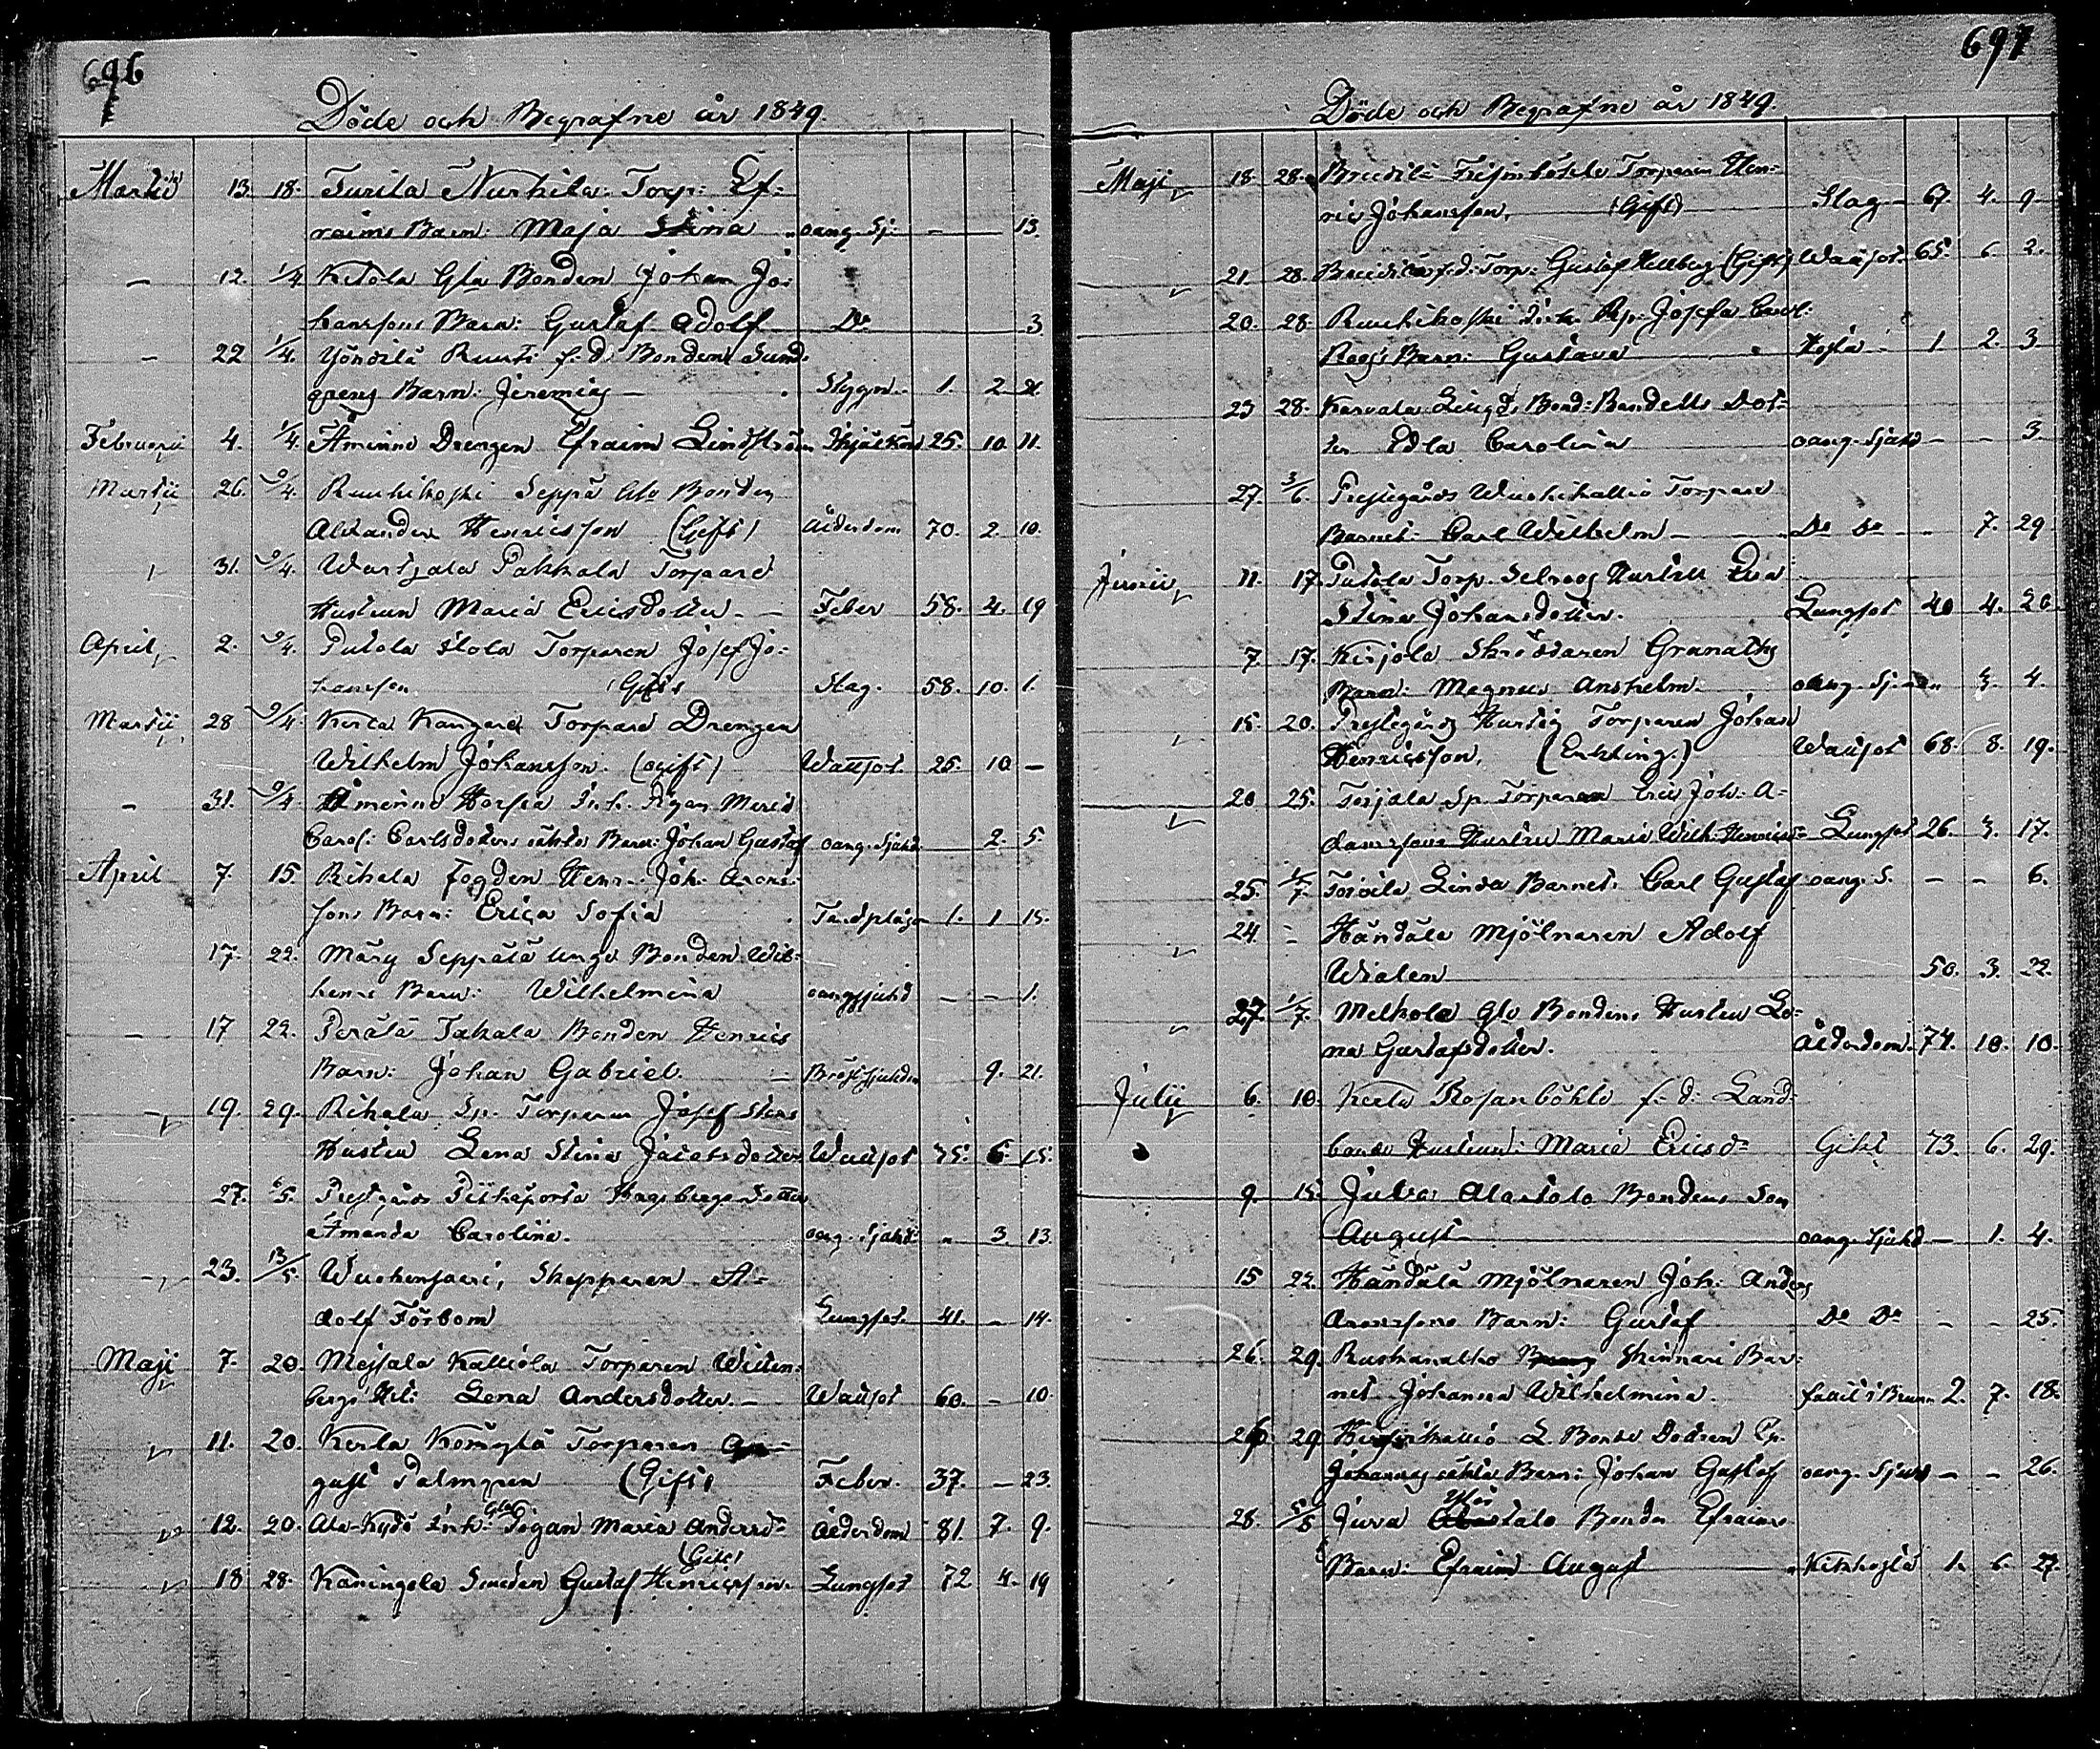 696
Döde och Begrafne år 1849.
Martii 13. 18. Turila Nurkila Torp: Ef-
raims Barn: Maja Stina oang. Sj: — 13.
— 12. 1/4 Ketola Gla Bonden Johan Jo-
hanssons Barn: Gustaf Adolf Do 3
— 22 1/4. Yönsilä Ruusi f. d. Bonden Sund-
grens Barn: Jeremias — Slygm. 1. 2. 21.
Februarii 4. 1/4. Åminne Drengen Efraim Lindström 25. 10. 11.
Martii 26. 9/4. Ruuhikoski Seppä Gla Bonden
Alexander Henricsson (Gift) Ålderdom 70. 2. 10.
31. 9/4. Pakkala Torpare
Hustrun Maria Ericsdotter. — Feber 58. 4. 19
April 2. 9/4. Putola Torparen Josef Jo-
hansson (Gift) Slag. 58. 10. 1.
Martii 28 9/4. Kerta Torpare Drengen
Wilhelm Johansson. (ogift) Wattsot. 25. 10. —
— 31. 9/4. Åminne Inh. Pigan Maria
Carol: Carlsdotters oäkta Barn: Johan Gustaf oang. Sjukd. 2. 5.
April 7. 15. Rihala Fogden Henr. Joh. Arons-
sons Barn: Erica Sofia Tandplåga 1. 1. 15.
17. 22. Märy Seppälä unge Bonden Wil-
helms Barn: Wilhelmina oang sjukd — — 1.
— 17 22. Perälä Takala Bonden Henrics
Barn: Johan Gabriel. — Bröstsjukdom 9. 21.
— 19. 29. Rihala Sp. Torparen Josef
Hustru Lena Stina Jacobsdotter Wattsot 75. 6. 15.
27. 6/5. Prestgårds dotter
Amanda Carolina. oang. sjukd: 3. 13.
— 23. 13/5. Wuohensaari, Skepparen A-
dolf Forbom Lungsot. 41. — 14.
Maji 7. 20. Mejsala Kalliola Torparen Widen-
bergs Lena Andersdotter. — Wattsot 60. — 10.
11. 20. Kerta Torparen Au-
gust Palmgren (Gift) Feber. 37. — 23.
12. 20. Ala-Kydö Inh. Gla Pigan Maria Andersd: Ålderdom 81. 7. 9.
(Gift)
18 28. Kaningola Smeden Gustaf Henricsson. Lungsot 72 4. 19
697
Döde och Begrafne år 1849.
Maji 18. 28. Torparen Hen-
ric Johansson, (Gift) Slag — 67. 4. 9
21. 28. f. d. Torp: Gustaf Hellberg (Gift) Wattsot. 65. 6. 2.
20. 28. Ruuhikoski Josefa Carol:
Barn: Gustava 1 2. 3
23 28. Karvala Bond: Bandells Dot-
ter Edla Carolina oang. Sjukd — — 3.
27. 3/6. Prestgårds Wuohikallio Torpare
Barnet: Carl Wilhelm — Do Do — 7. 29.
Junii 11. 17. Putola Torp. Hustru Eva
Stina Johansdotter. Lungsot 40 4. 20
7. 17. Kirjola Skräddaren Granaths
Barn: Magnus Anshelm. oang. Sj. 3. 4.
15. 20. Prestegårds Torparen Johan
Henricsson. (Enkling.) Wattsot 68. 8. 19.
20 25. Sp. Torparen Eric Joh: A-
damssons Hustru Maria Wilh. Lungsot 26. 3. 17.
25. 1/7 Linda Barnet: Carl Gustaf oang. S. — — 6.
24. — Händälä Mjölnaren Adolf
Wialen 50. 3. 22.
27. 1/7. Melkola Gla Bondens Hustru Le-
na Gustafsdotter. Ålderdom. 74. 10. 10.
Julii 6. 10. Kerta Rosanböhle f. d. Land-
Hustrun: Maria Ericsd: Gikt 73. 6. 29.
9. 15. Juva Alastalo Bondens Son
August oang. Sjukd — 1. 4.
15 22. Händälä Mjölnaren Joh: Anders
Anderssons Barn: Gustaf Do Do — — 25.
26. 29. Ruskeakallio Skinnari Bar-
net Johanna Wilhelmina. 2. 7. 18.
26. 29 L. Bonde Dottren
Johannas oäkta Barn: Johan Gustaf oang. Sjukd — — 26.
28. 5/8 Juva Ylistalo Bonden Efraims
Barn: Efraim August Kikhosta 1. 6. 27.